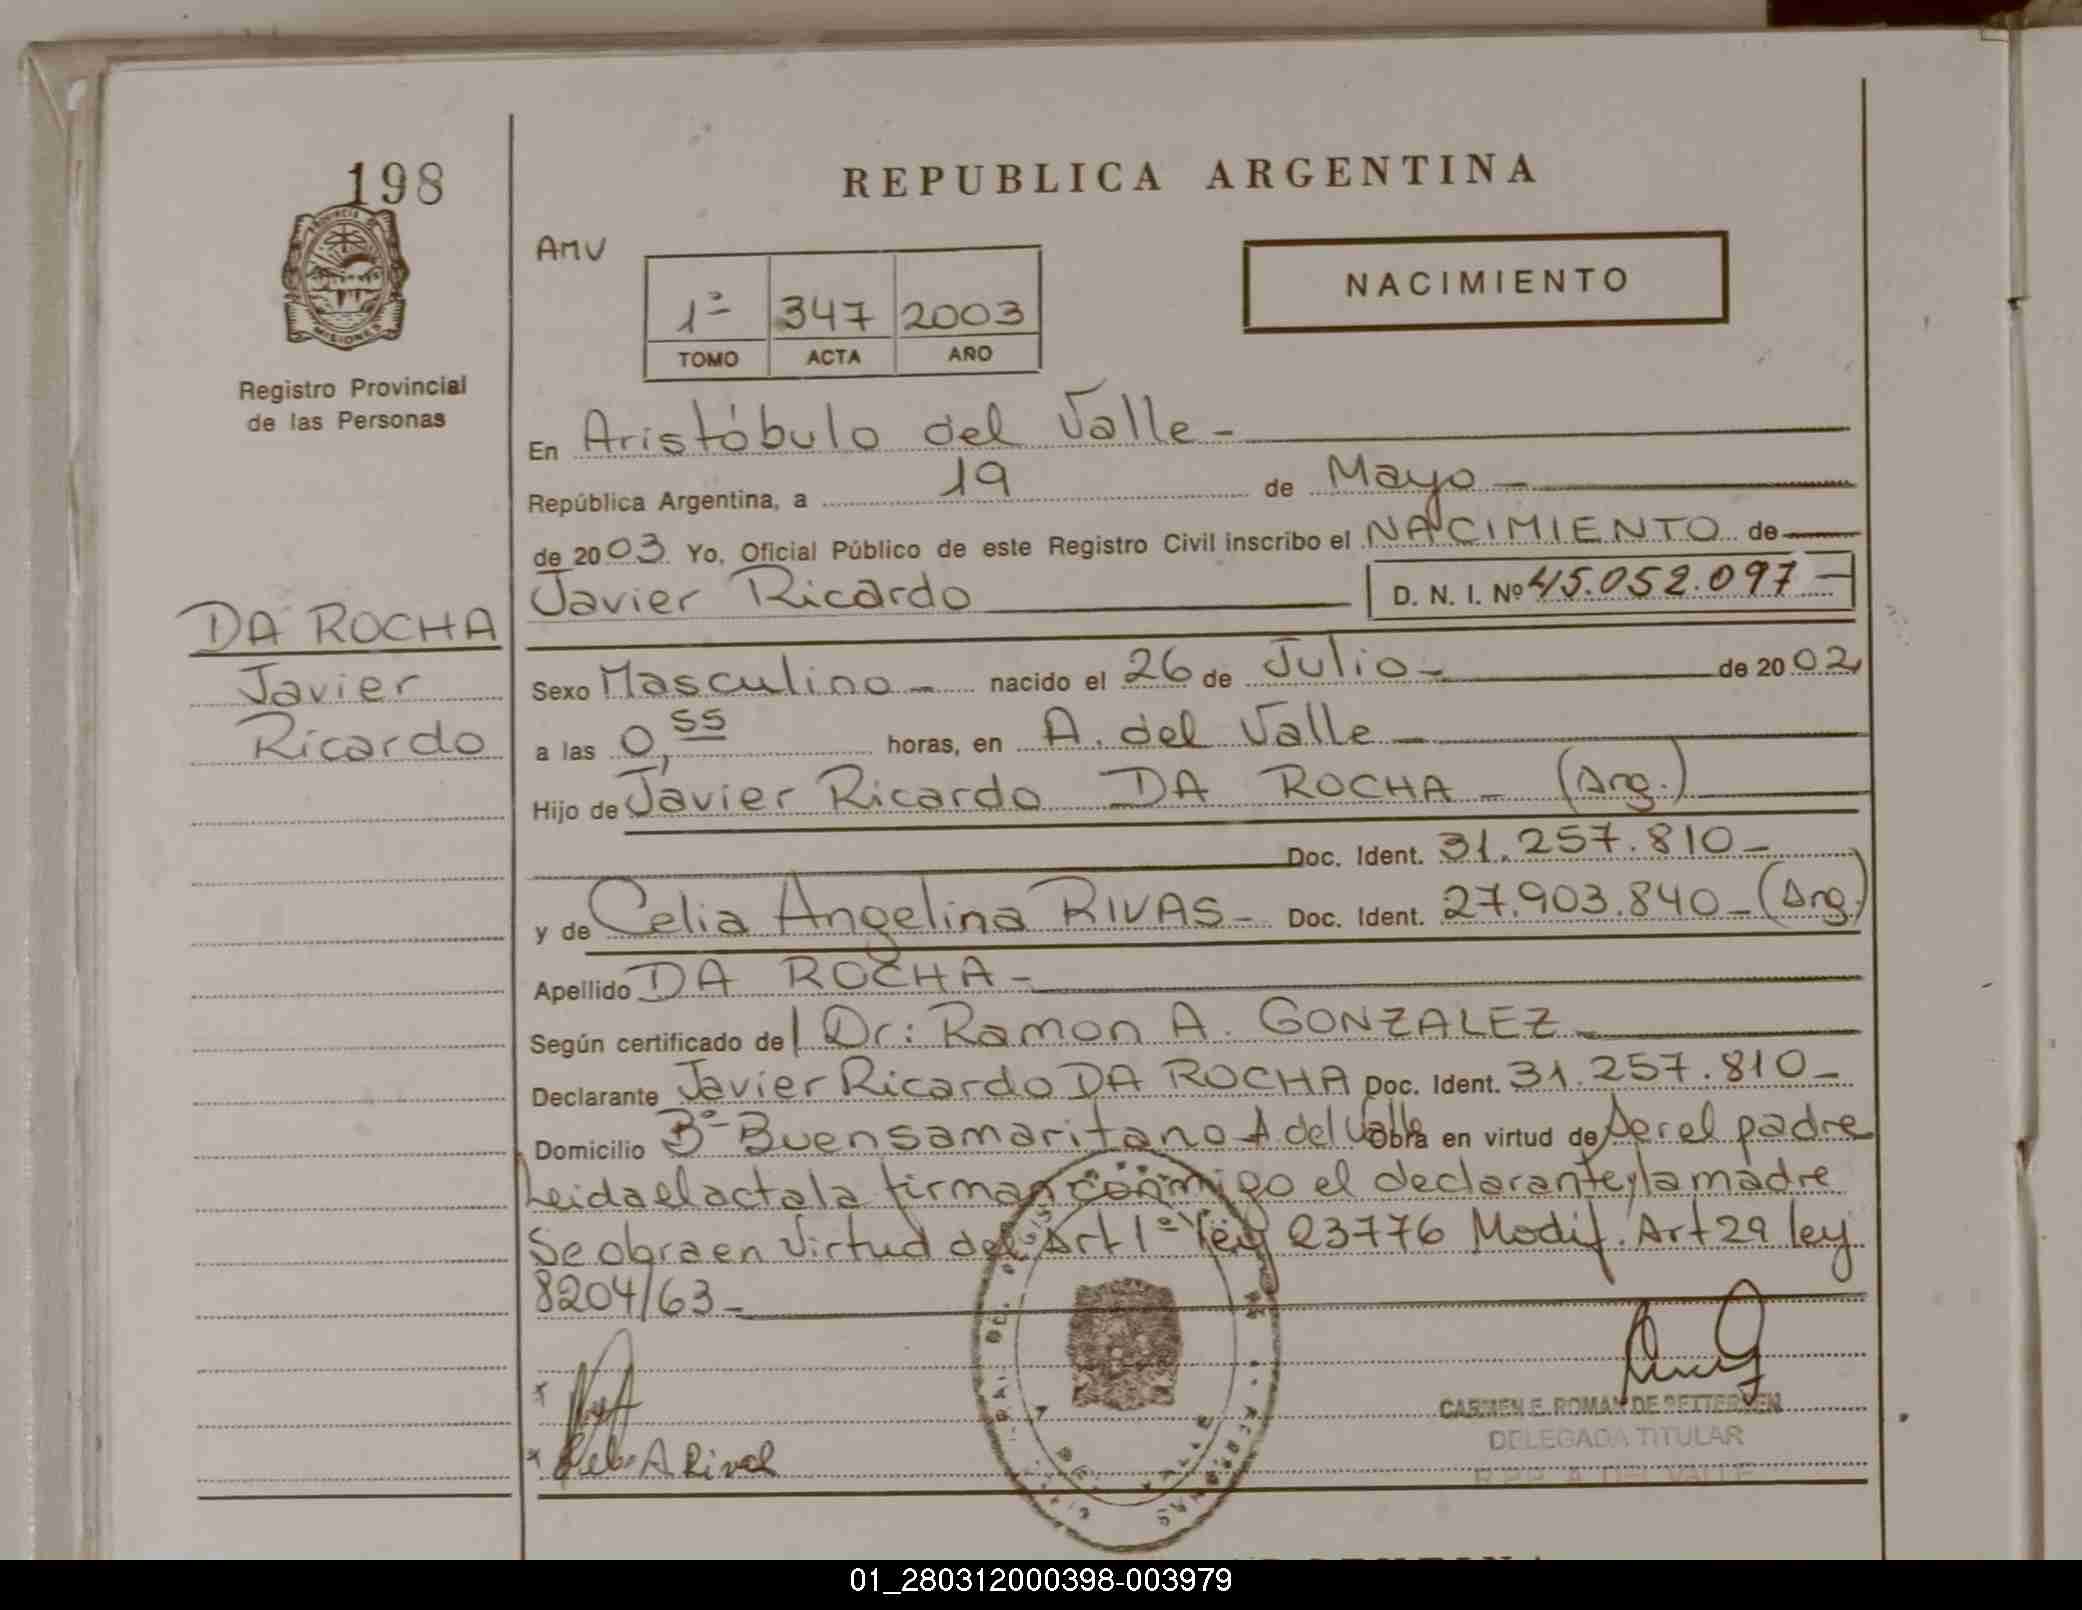 198
REPUBLICA ARGENTINA
PROVINCIA DE
MISIONES
Registro Provincial
de las Personas
AMV
1º 347 2003
TOMO ACTA AÑO
NACIMIENTO
En Aristóbulo del Valle -
República Argentina, a 19 de Mayo -
de 2003 Yo, Oficial Público de este Registro Civil inscribo el NACIMIENTO de
Javier Ricardo D. N. I. Nº 45.052.097 -
DA ROCHA
Javier
Ricardo
Sexo Masculino - nacido el 26 de Julio - de 2002
a las 0,55 horas, en A. del Valle -
Hijo de Javier Ricardo DA ROCHA - (Arg.)
Doc. Ident. 31.257.810 -
y de Celia Angelina RIVAS - Doc. Ident. 27.903.840 - (Arg.)
Apellido DA ROCHA -
Según certificado de l Dr: Ramon A. GONZALEZ -
Declarante Javier Ricardo DA ROCHA Doc. Ident. 31.257.810 -
Domicilio Bº Buensamaritano A del Valle Obra en virtud de Ser el padre
Leida el acta la firman conmigo el declarante y la madre
Se obra en virtud del Art 1º ley 23776 Modif. Art 29 ley
8204/63 -
A Rivas
CARMEN E. ROMAN DE PETTERSEN
DELEGADA TITULAR
R.P.P. A. DEL VALLE
01_280312000398-003979